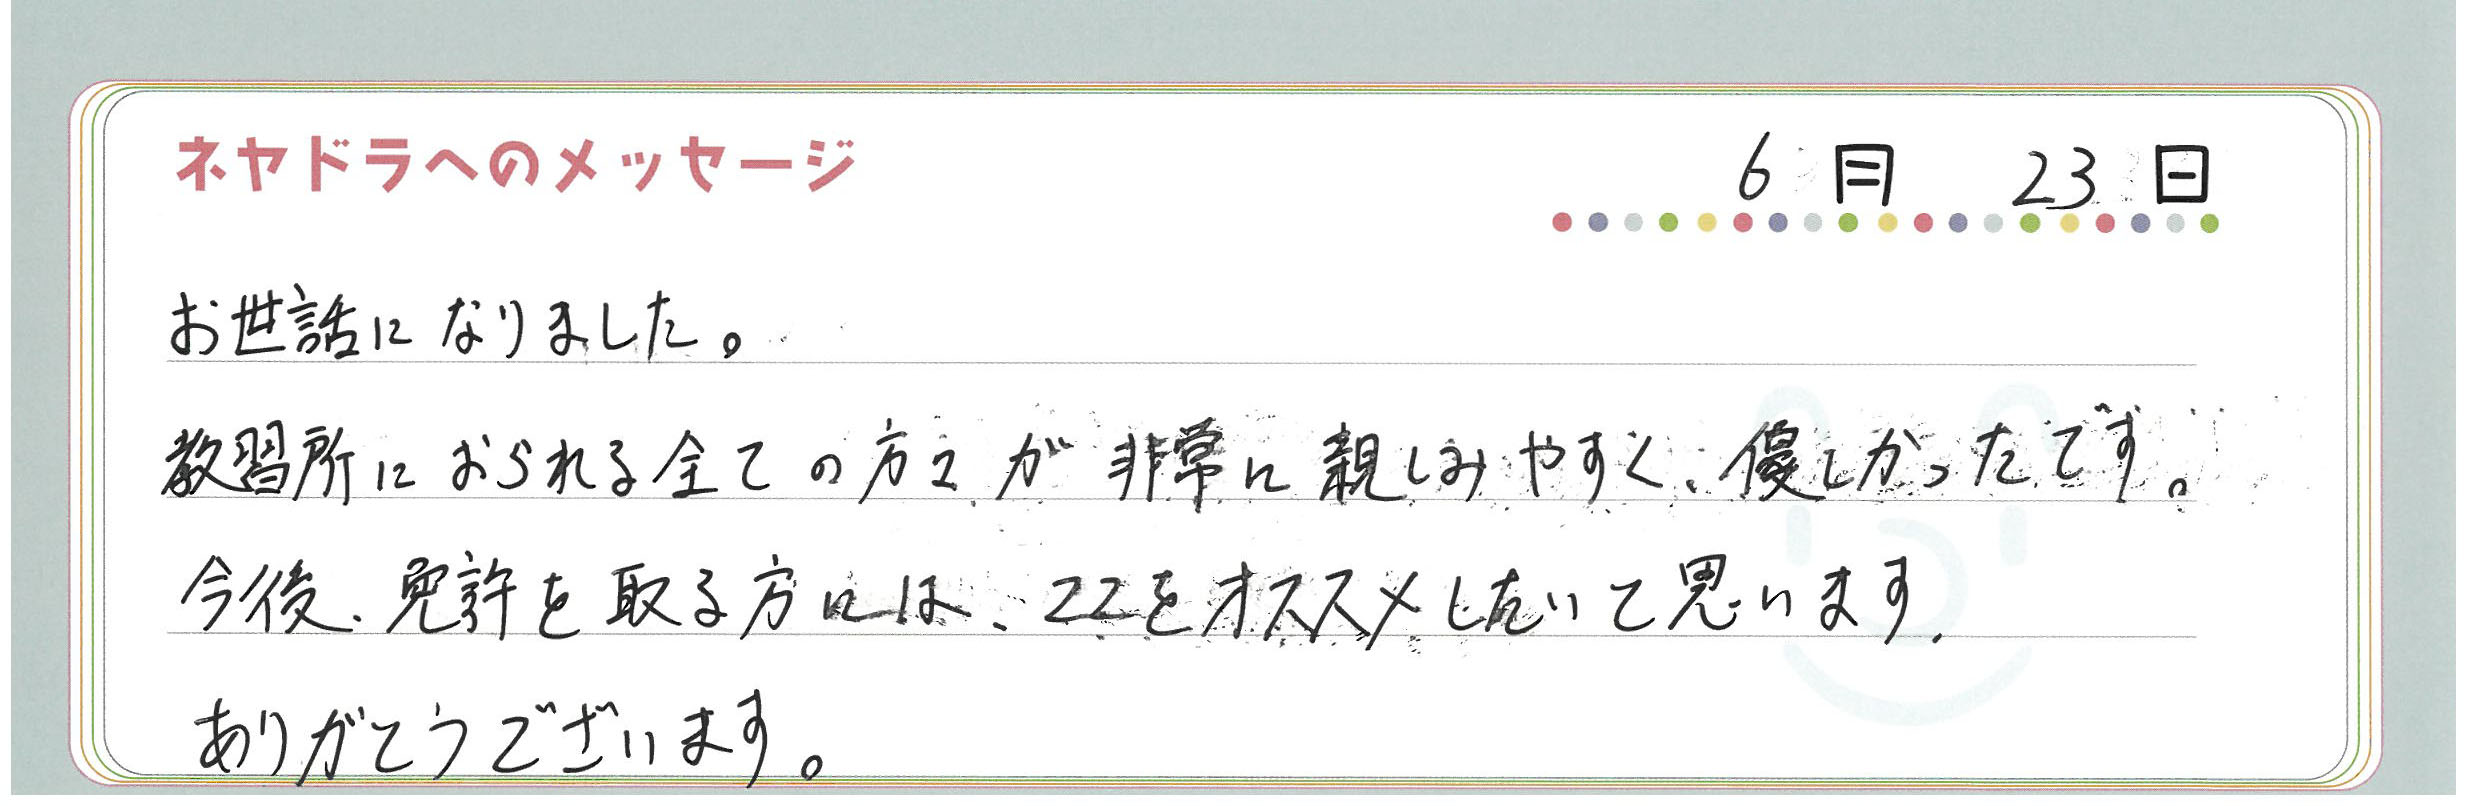 ネヤドラへのメッセージ
6月 23日
お世話になりました。
教習所におられる全ての方々が非常に親しみやすく、優しかったです。
今後、免許を取る方には、ココをオススメしたいと思います。
ありがとうございます。